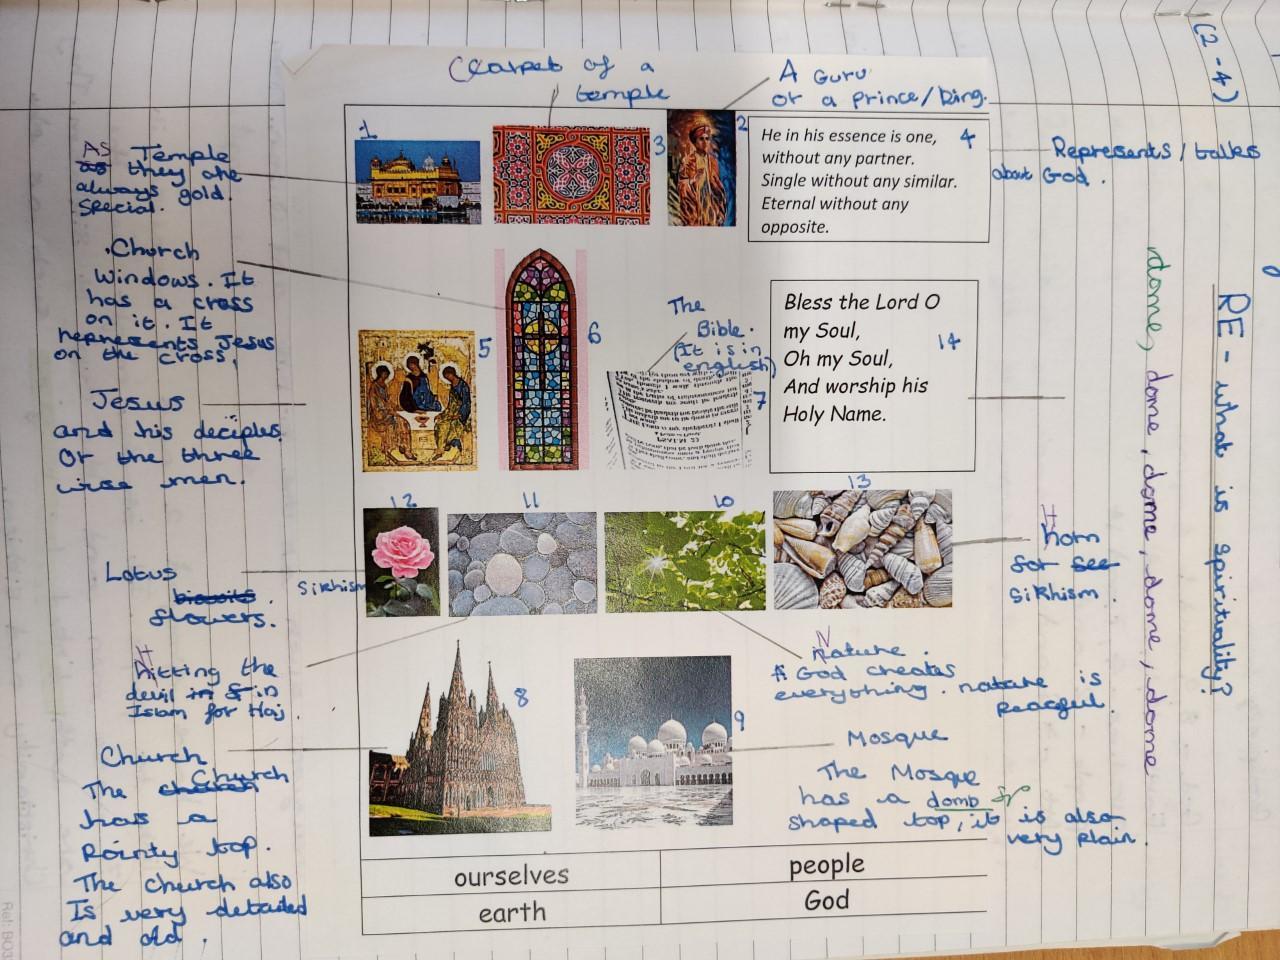 (2-4)
RE - what is spirituality?
dome, dome, dome, dome, dome
Carpet of a
temple
A Guru
or a Prince/king.
1
2
3
4
AS Temple
as they are
always gold.
Special.
He in his essence is one,
without any partner.
Single without any similar.
Eternal without any
opposite.
Represents/talks
about God.
.Church
windows. It
has a cross
on it. It
represents Jesus
on the cross.
5
6
The
Bible.
(It is in
english)
7
PSALM 23
Bless the Lord O
my Soul,
Oh my Soul,
And worship his
Holy Name.
14
Jesus
and his deciples.
Or the three
wise men.
12
11
10
13
Lotus
flowers.
Sikhism
Horn
for see
Sikhism.
Hitting the
devil in & in
Islam for Haj.
Nature.
God creates
everything. nature is
Peaceful.
8
9
Church
The Church
has a
Pointy top.
The church also
Is very detailed
and old.
Mosque
The Mosque
has a domb sp
shaped top, it is also
very plain.
ourselves
people
earth
God